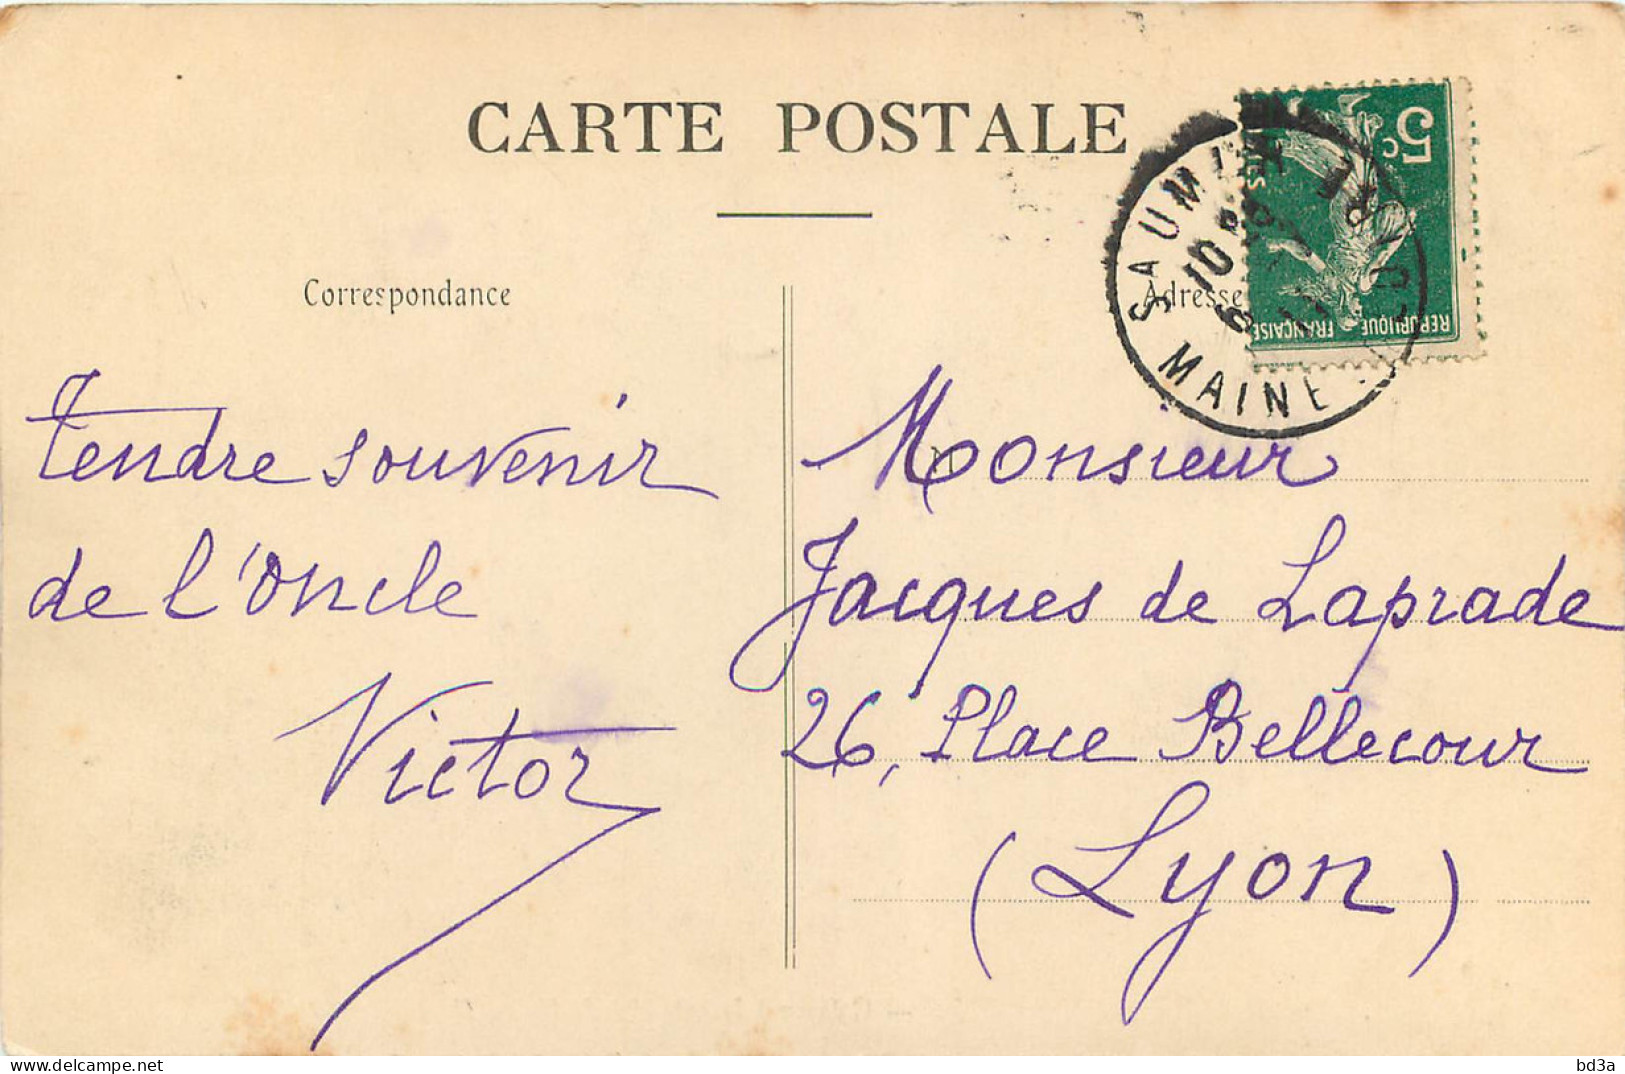 CARTE POSTALE
Correspondance
Adresse
SAUMUR
MAINE
5c
REPUBLIQUE FRANCAISE
Tendre souvenir
de l'Oncle
Victor
M
Monsieur
Jacques de Laprade
26, Place Bellecour
(Lyon)
Delcampe.net
bd3a